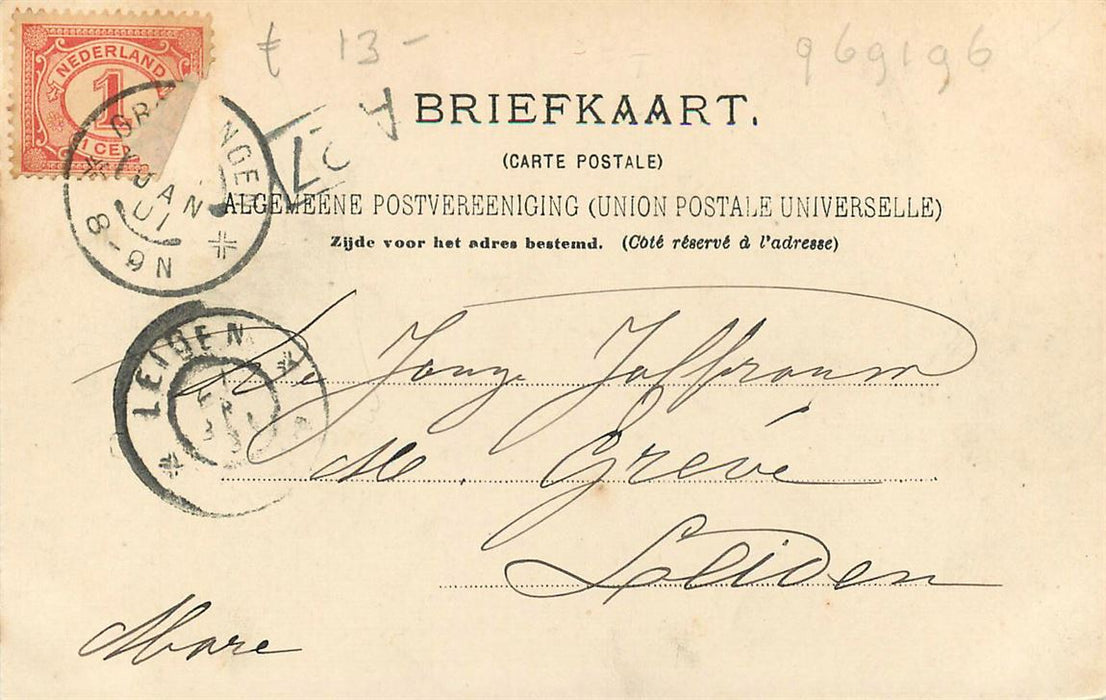 € 13 -
969196
NEDERLAND
1
1 CE
GR NGEN
JAN
01
8-9N
BRIEFKAART.
(CARTE POSTALE)
ALGEMEENE POSTVEREENIGING (UNION POSTALE UNIVERSELLE)
Zijde voor het adres bestemd. (Côté réservé à l'adresse)
LEIDEN
De Jonge Jaffrouw
M. Grevé
Leiden
Mare